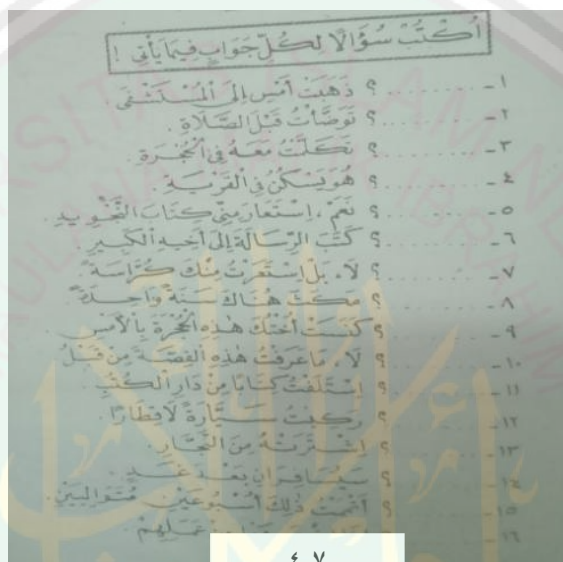 أُكْتُبْ سُؤَالًا لِكُلِّ جَوَابٍ فِيمَا يَأْتِي !
١- ......... ؟ ذَهَبَتْ أَمْسِ إِلَى الْمُسْتَشْفَى .
٢- ......... ؟ تَوَضَّأْتُ قَبْلَ الصَّلَاةِ .
٣- ......... ؟ تَكَلَّمْتُ مَعَهُ فِي الْحُجْرَةِ .
٤- ......... ؟ هُوَ يَسْكُنُ فِي الْقَرْيَةِ .
٥- ......... ؟ نَعَمْ ، اِسْتَعَارَ مِنِّي كِتَابَ التَّجْوِيدِ .
٦- ......... ؟ كَتَبَ الرِّسَالَةَ إِلَى أَخِيهِ الْكَبِيرِ
٧- ......... ؟ لَا ، بَلْ اِسْتَعَرْتُ مِنْكَ كُرَّاسَةً .
٨- ......... ؟ مَكَثَ هُنَاكَ سَنَةً وَاحِدَةً .
٩- ......... ؟ كَنَسَتْ أُخْتُكَ هَذِهِ الْحُجْرَةَ بِالْأَمْسِ .
١٠- ......... ؟ لَا ، مَا عَرَفْتُ هَذِهِ الْقِصَّةَ مِنْ قَبْلُ
١١- ......... ؟ اِسْتَلَفْتُ كِتَابًا مِنْ دَارِ الْكُتُبِ .
١٢- ......... ؟ رَكِبْتُ سَيَّارَةً لَا قِطَارًا .
١٣- ......... ؟ اِشْتَرَيْتُهُ مِنَ التُّجَّارِ .
١٤- ......... ؟ سَيُسَافِرَانِ بَعْدَ غَدٍ .
١٥- ......... ؟ أَتْمَمْتُ ذَلِكَ أُسْبُوعَيْنِ مُتَوَالِيَيْنِ .
١٦- ......... ؟ عَمَلِهِمْ .
٤٠٧